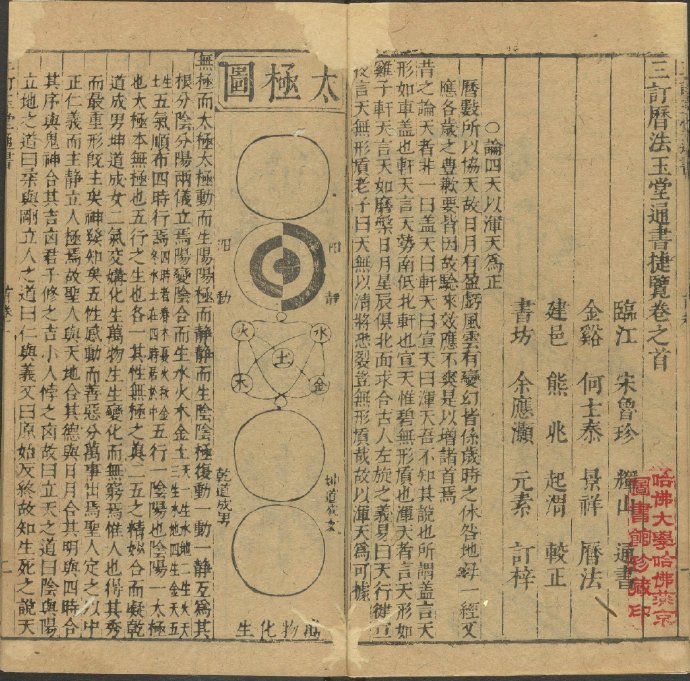 三訂曆法玉堂通書捷覽卷之首
臨江 宋魯珍 輝山 通書
金谿 何士泰 景祥 曆法
建邑 熊兆 起渭 較正
書坊 余應灝 元素 訂梓
哈佛大學哈佛燕京
圖書館珍藏印
〇論四天以渾天為正
曆數所以協天故日月有盈虧風雲有變幻皆係歲時之休咎地母一經又
應各歲之豊歉要皆因故驗來效應不爽是以增諸首焉
昔之論天者非一曰盖天曰軒天曰宣天曰渾天吾不知其說也所謂盖言天
形如車盖也軒天言天勢南低北軒也宣天惟碧無形質也渾天者言天形如
雞子軒天言天如磨磐日月星辰俱北面求合古人左旋之義易曰天行徤宣
夜言天無形質老子曰天無以清將恐裂豈無形質哉故以渾天為可據
太極圖
陽
動
陰
靜
火
水
土
木
金
乾道成男
坤道成女
萬物化生
無極而太極太極動而生陽陽極而靜靜而生陰陰極復動一動一靜互為其
根分陰分陽兩儀立焉陽變陰合而生水火木金土
生五氣順布四時行焉
五行一陰陽也陰陽一太極
也太極本無極也五行之生也各一其性無極之真二五之精妙合而凝乾
道成男坤道成女二氣交媾化生萬物生生變化而無窮焉惟人也得其秀
而最重形既生矣神發知矣五性感動而善惡分萬事出焉聖人定之以中
正仁義而主靜立人極焉故聖人與天地合其德與日月合其明與四時合
其序與鬼神合其吉凶君子修之吉小人悖之凶故曰立天之道曰陰與陽
立地之道曰柔與剛立人之道曰仁與義又曰原始反終故知生死之說天